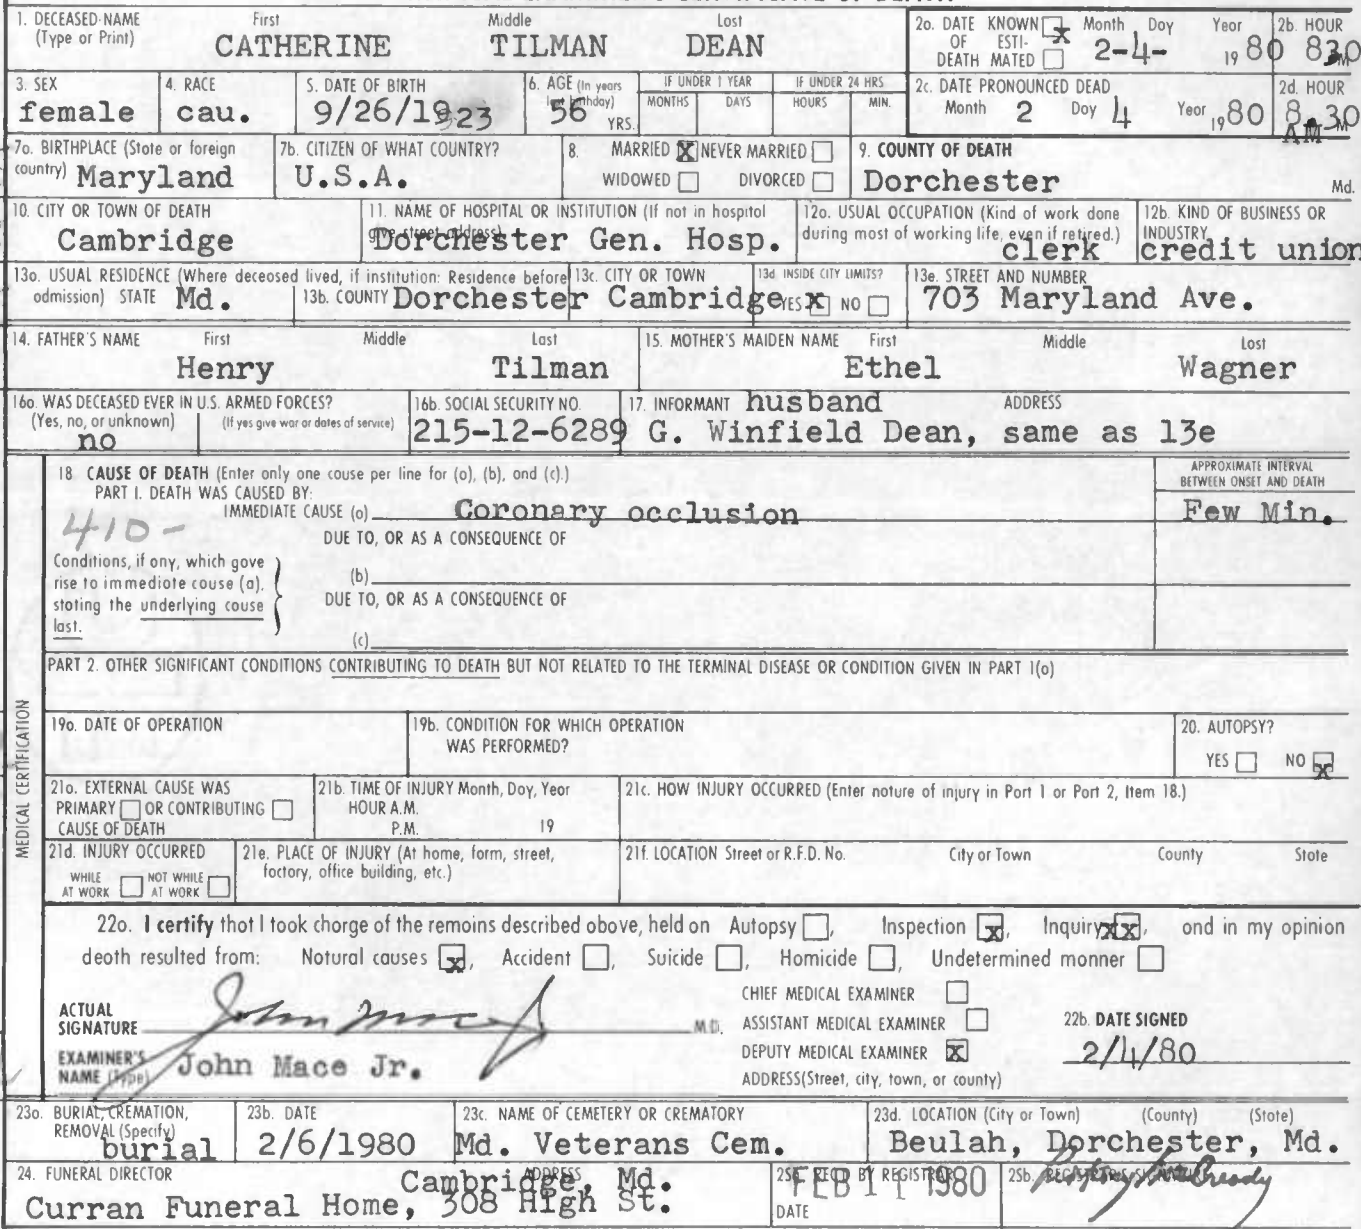 1. DECEASED-NAME (Type or Print) First Middle Last
CATHERINE TILMAN DEAN
2a. DATE OF DEATH KNOWN [x] ESTIMATED [ ] Month Day Year
2-4- 1980
2b. HOUR
830 M
3. SEX
female
4. RACE
cau.
5. DATE OF BIRTH
9/26/1923
6. AGE (In years last birthday)
56 YRS.
IF UNDER 1 YEAR MONTHS DAYS
IF UNDER 24 HRS HOURS MIN.
2c. DATE PRONOUNCED DEAD
Month 2 Day 4 Year 1980
2d. HOUR
8.30
AM
7a. BIRTHPLACE (State or foreign country) Maryland
7b. CITIZEN OF WHAT COUNTRY?
U.S.A.
8. MARRIED [X] NEVER MARRIED [ ]
WIDOWED [ ] DIVORCED [ ]
9. COUNTY OF DEATH
Dorchester Md.
10. CITY OR TOWN OF DEATH
Cambridge
11. NAME OF HOSPITAL OR INSTITUTION (If not in hospital give street address)
Dorchester Gen. Hosp.
12a. USUAL OCCUPATION (Kind of work done during most of working life, even if retired.)
clerk
12b. KIND OF BUSINESS OR INDUSTRY
credit union
13a. USUAL RESIDENCE (Where deceased lived, if institution: Residence before admission) STATE Md.
13b. COUNTY Dorchester
13c. CITY OR TOWN
Cambridge
13d INSIDE CITY LIMITS?
YES [X] NO [ ]
13e. STREET AND NUMBER
703 Maryland Ave.
14. FATHER'S NAME First Middle Last
Henry Tilman
15. MOTHER'S MAIDEN NAME First Middle Last
Ethel Wagner
16a. WAS DECEASED EVER IN U.S. ARMED FORCES?
(Yes, no, or unknown) (If yes give war or dates of service)
no
16b. SOCIAL SECURITY NO.
215-12-6289
17. INFORMANT husband ADDRESS
G. Winfield Dean, same as 13e
MEDICAL CERTIFICATION
18. CAUSE OF DEATH (Enter only one cause per line for (a), (b), and (c).)
APPROXIMATE INTERVAL BETWEEN ONSET AND DEATH
PART I. DEATH WAS CAUSED BY:
IMMEDIATE CAUSE (a) Coronary occlusion Few Min.
410-
DUE TO, OR AS A CONSEQUENCE OF
Conditions, if any, which gave rise to immediate cause (a), stating the underlying cause last.
(b)
DUE TO, OR AS A CONSEQUENCE OF
(c)
PART 2. OTHER SIGNIFICANT CONDITIONS CONTRIBUTING TO DEATH BUT NOT RELATED TO THE TERMINAL DISEASE OR CONDITION GIVEN IN PART 1(a)
19a. DATE OF OPERATION
19b. CONDITION FOR WHICH OPERATION WAS PERFORMED?
20. AUTOPSY?
YES [ ] NO [x]
21a. EXTERNAL CAUSE WAS
PRIMARY [ ] OR CONTRIBUTING [ ]
CAUSE OF DEATH
21b. TIME OF INJURY Month, Day, Year
HOUR A.M.
P.M. 19
21c. HOW INJURY OCCURRED (Enter nature of injury in Part 1 or Part 2, Item 18.)
21d. INJURY OCCURRED
WHILE AT WORK [ ] NOT WHILE AT WORK [ ]
21e. PLACE OF INJURY (At home, farm, street, factory, office building, etc.)
21f. LOCATION Street or R.F.D. No. City or Town County State
22a. I certify that I took charge of the remains described above, held on Autopsy [ ], Inspection [x], Inquiry [x], and in my opinion
death resulted from: Natural causes [x], Accident [ ], Suicide [ ], Homicide [ ], Undetermined manner [ ]
ACTUAL SIGNATURE John Mace Jr M.D.
EXAMINER'S NAME (Type) John Mace Jr.
CHIEF MEDICAL EXAMINER [ ]
ASSISTANT MEDICAL EXAMINER [ ]
DEPUTY MEDICAL EXAMINER [X]
ADDRESS(Street, city, town, or county)
22b. DATE SIGNED
2/4/80
23a. BURIAL, CREMATION, REMOVAL (Specify)
burial
23b. DATE
2/6/1980
23c. NAME OF CEMETERY OR CREMATORY
Md. Veterans Cem.
23d. LOCATION (City or Town) (County) (State)
Beulah, Dorchester, Md.
24. FUNERAL DIRECTOR ADDRESS
Cambridge, Md.
Curran Funeral Home, 308 High St.
25a. REC'D BY REGISTRAR
DATE
FEB 11 1980
25b. REGISTRAR'S SIGNATURE